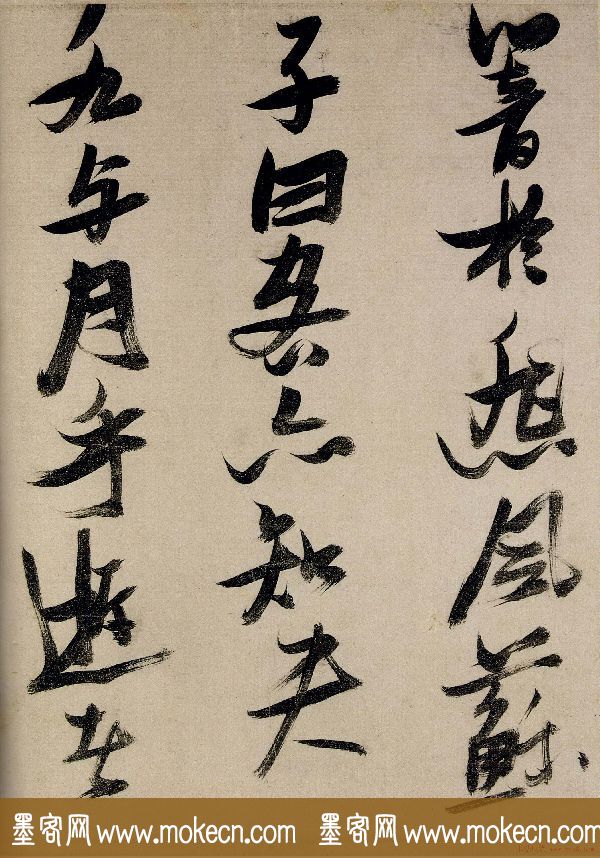 響於悲風蘇
子曰客亦知夫
水与月乎逝者
墨客网 www.mokecn.com 墨客网 www.mokecn.com